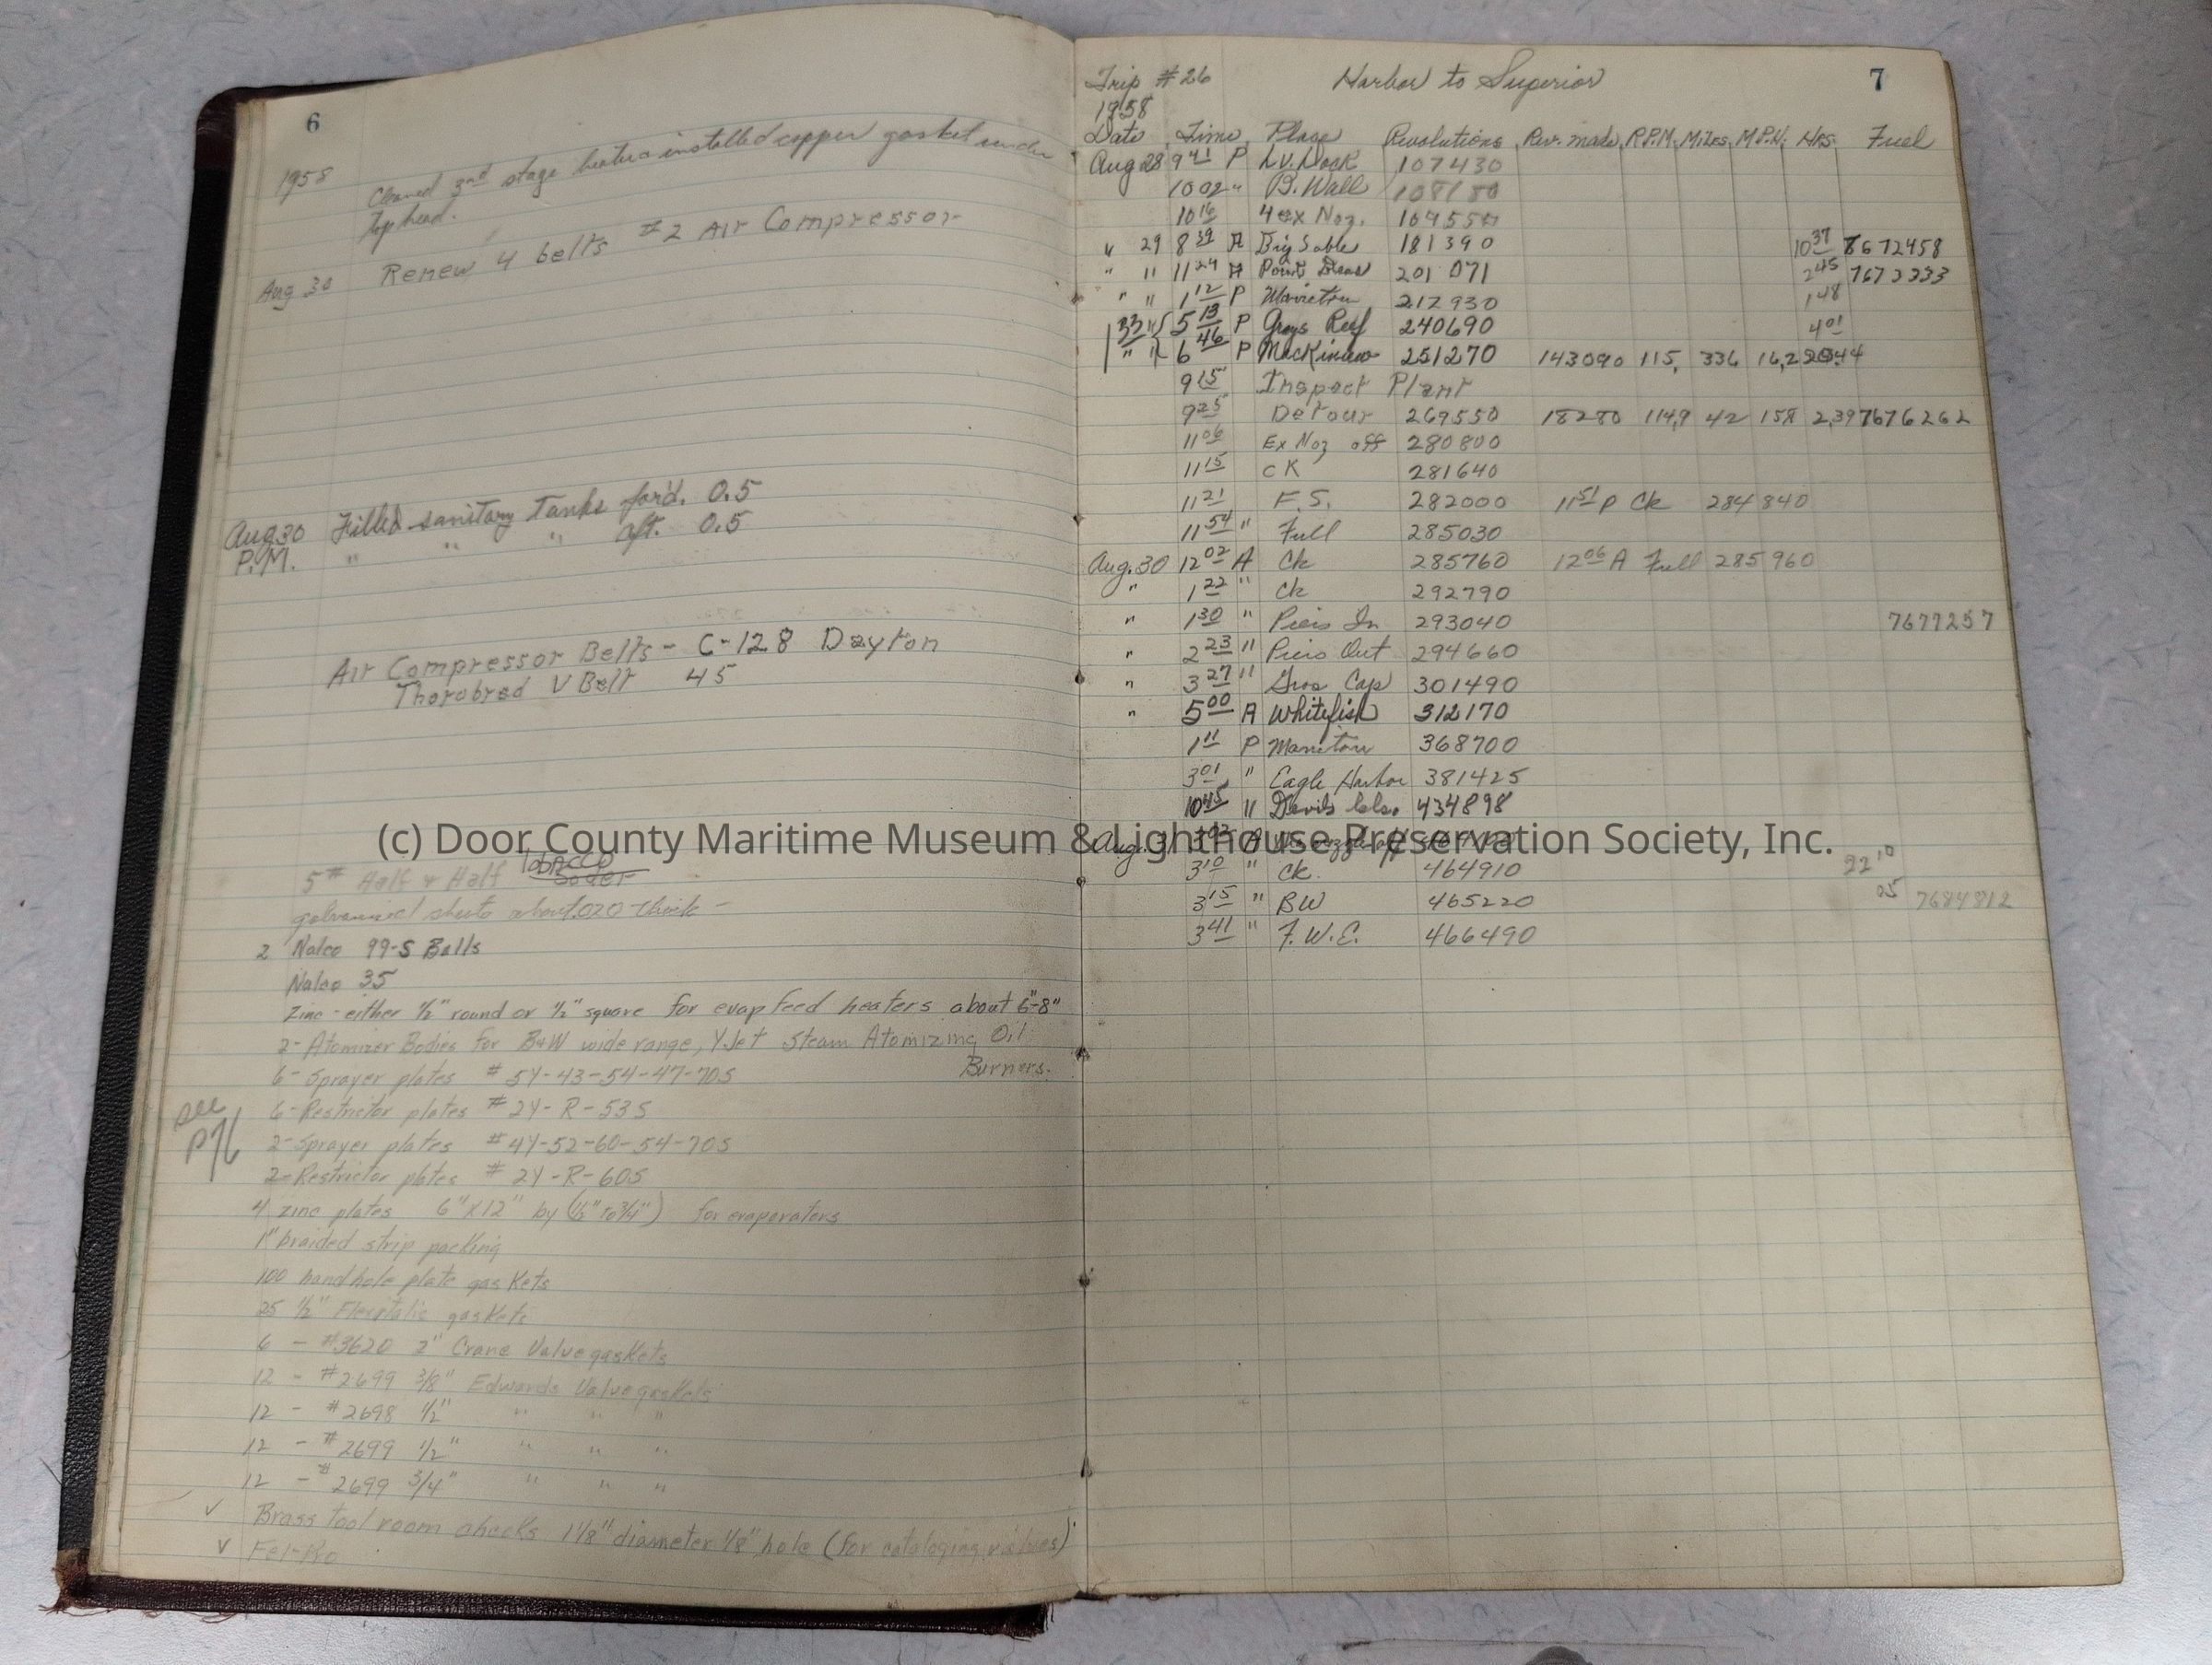 6
1958 Cleaned 2nd stage heater installed copper gasket under
Top head.
Aug 30 Renew 4 belts #2 Air Compressor
Aug 30 Filled sanitary tanks for'd. 0.5
P.M. " " " aft. 0.5
Air Compressor Belts - C-128 Dayton
Thorobred V Belt 45
Tobacco
5# Half & Half Soder
galvanized sheets about .020 thick -
2 Nalco 99-S Balls
Nalco 35
Zinc - either 1/2" round or 1/2" square for evap feed heaters about 6"-8"
2 - Atomizer Bodies for B&W wide range, Y Jet Steam Atomizing Oil
Burners.
6 - Sprayer plates # 5Y-43-54-47-70S
see
P76
6 - Restrictor plates # 2Y-R-53S
2 - Sprayer plates # 4Y-52-60-54-70S
2 - Restrictor plates # 2Y-R-60S
4 zinc plates 6" X 12" by (1/2" to 3/4") for evaporators
1" braided strip packing
100 handhole plate gaskets
25 1/2" gaskets
6 - #3620 2" Crane Valve gaskets
12 - #2699 3/8" Edwards Valve gaskets
12 - #2698 1/2" " " "
12 - #2699 1/2" " " "
12 - #2699 3/4" " " "
✓ Brass tool room checks 1 1/8" diameter 1/8" hole (for cataloging valves)
✓ Fer-Ko
7
Trip #26 Harbor to Superior
1958
Date Time Place Revolutions Rev. made R.P.M. Miles M.P.H. Hrs. Fuel
Aug 28 9 41 P Lv. Dock 107430
10 02 " B. Wall
10 16 4 ex Noz. 109550
" 29 8 39 A Big Sable 181390 10 37 7672458
" " 11 24 A Point 201071 2 45 7673333
" " 1 12 P Manitou 212930 1 48
" 5 13 P Grays Reef 240690 4 01
" " 6 46 P Mackinaw 251270 143090 115, 336
9 15 Inspect Plant
9 25 Detour 269550 18280 114,9 42 158 2,39 7676262
11 06 Ex Noz off 280800
11 15 CK 281640
11 21 F.S. 282000 11 51 P Ck 284840
11 54 " Full 285030
Aug. 30 12 02 A Ck 285760 12 06 A Full 285960
" 1 22 " Ck 292790
" 1 30 " Piers In 293040 7677257
" 2 23 " Piers Out 294660
" 3 27 " Gros Cap 301490
" 5 00 A Whitefish 312170
1 11 P Manitou 368700
3 01 " Eagle Harbor 381425
10 45 " Devils Isls. 434898
(c) Door County Maritime Museum & Lighthouse Preservation Society, Inc.
Aug. 31 3 02 A
3 10 " Ck. 464910 22 10
3 15 " BW 465220 05 7684812
3 41 " F.W.E. 466490